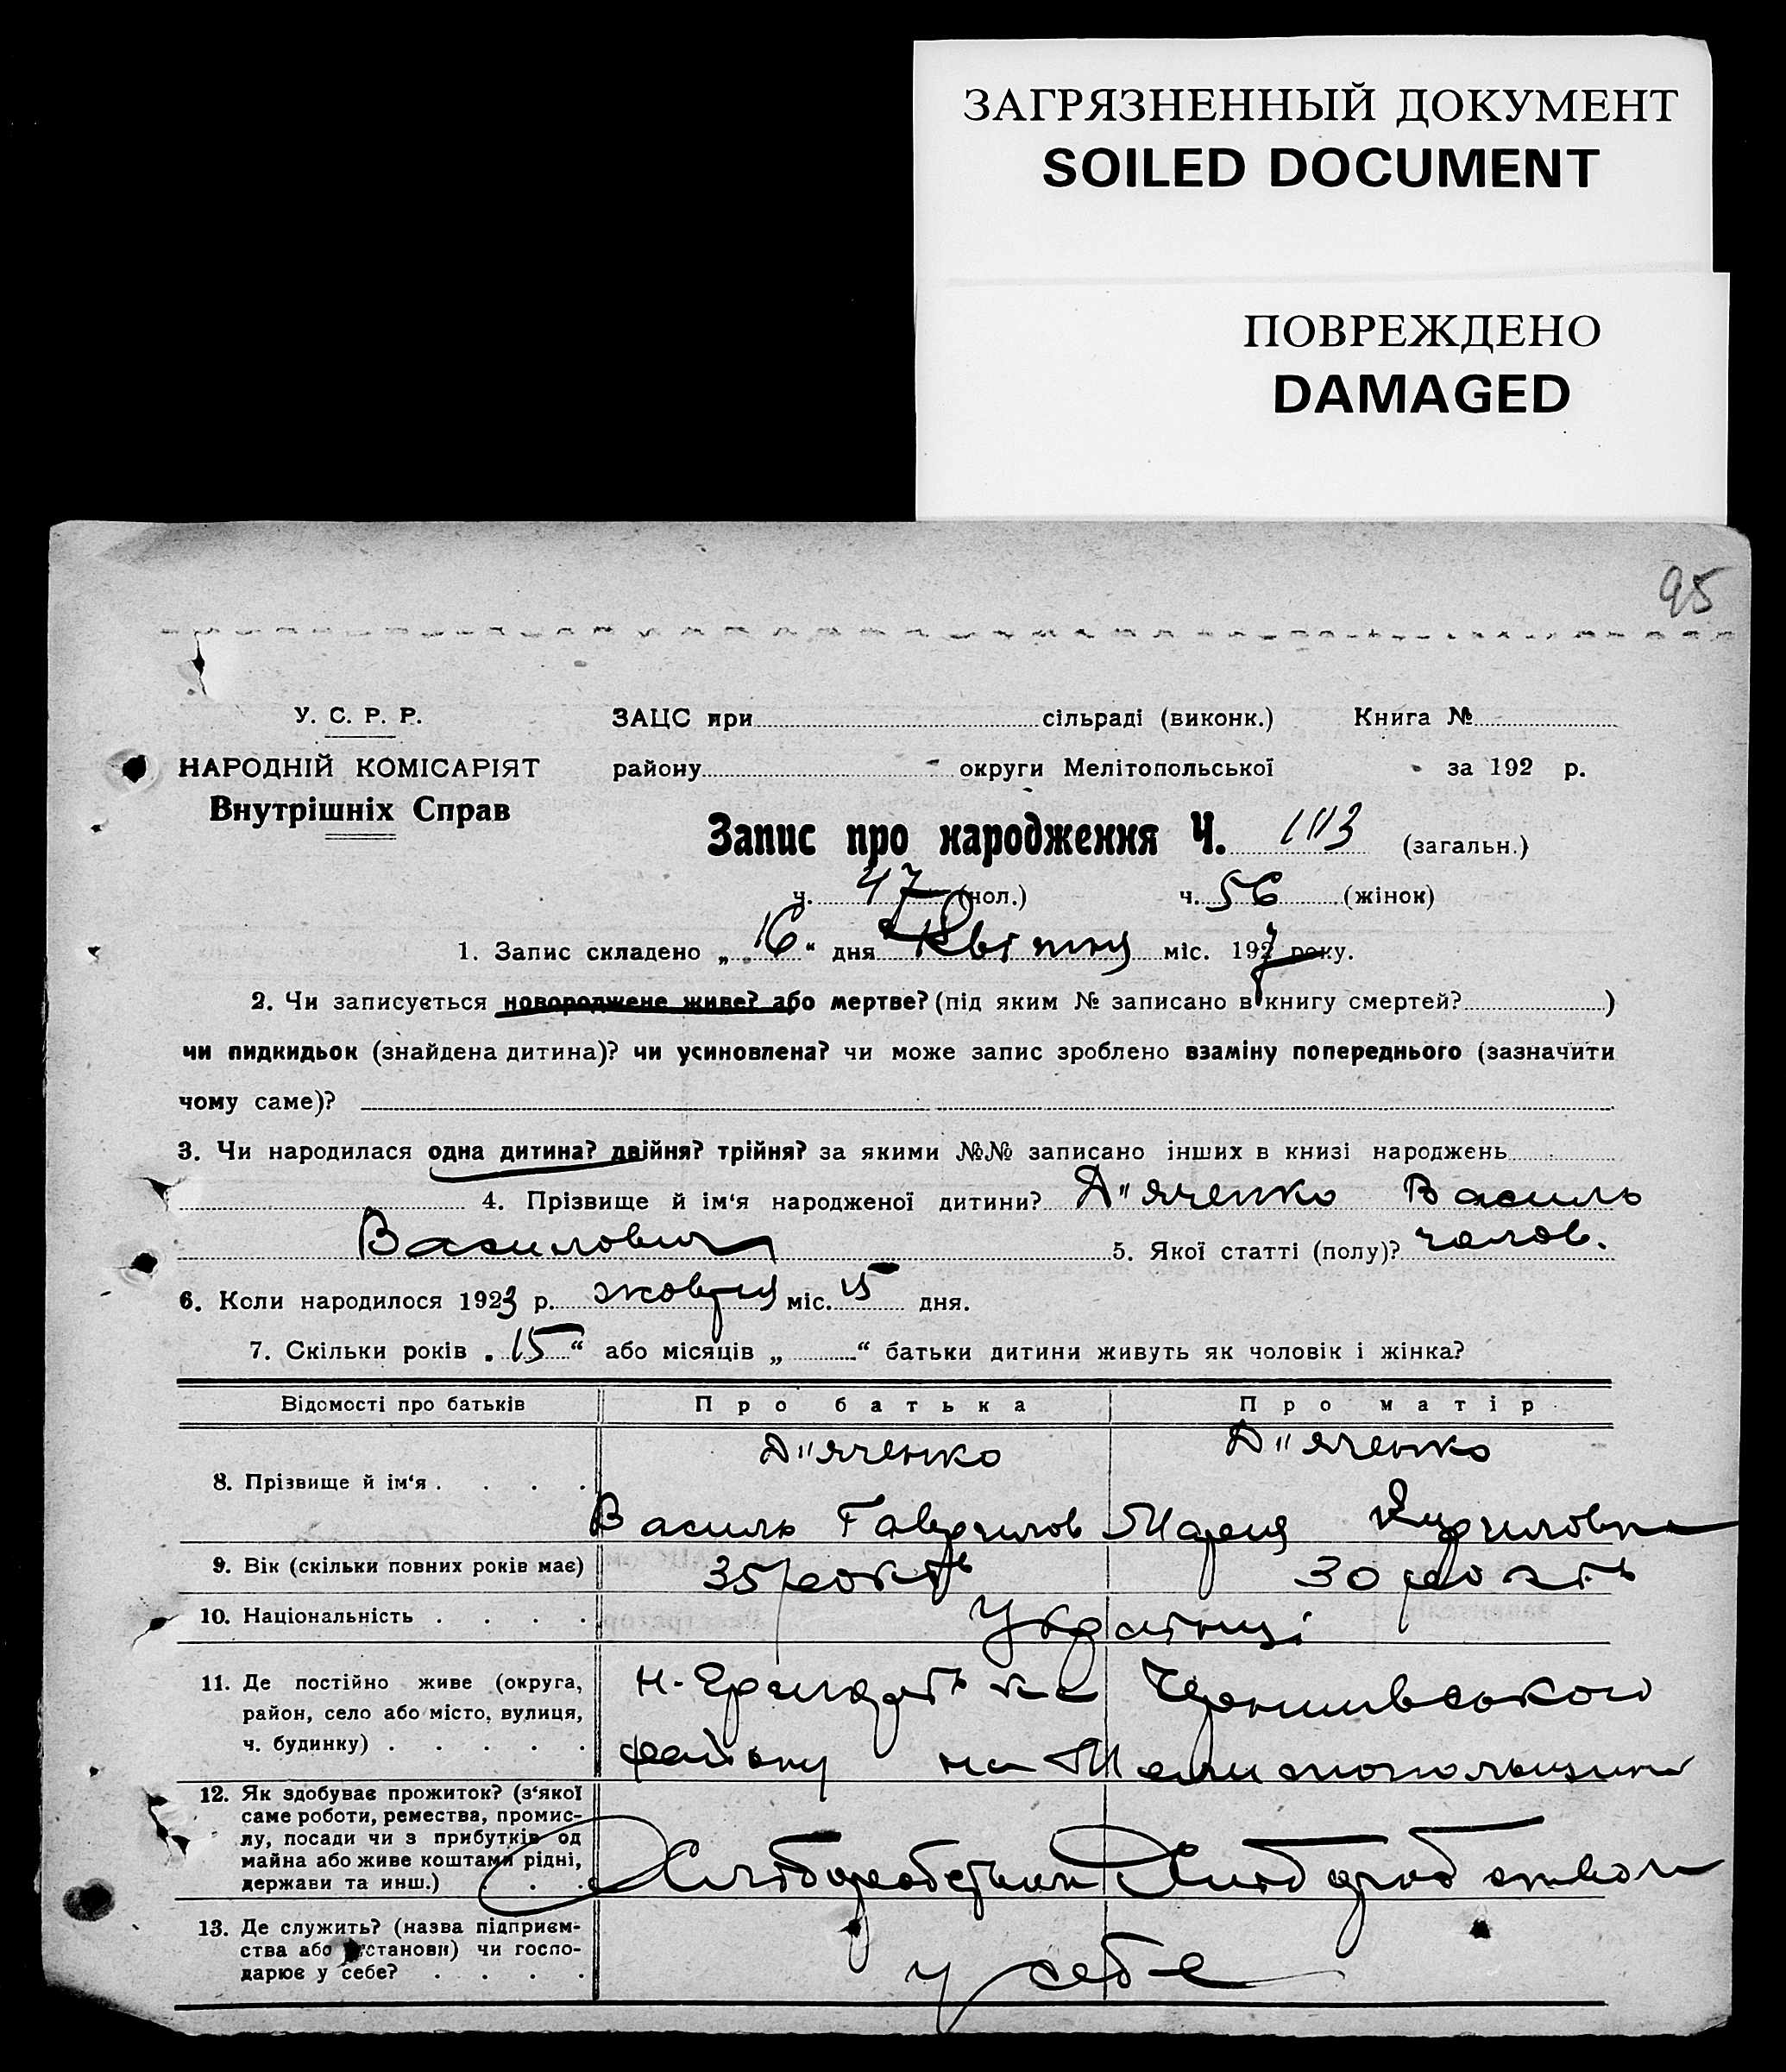 ЗАГРЯЗНЕННЫЙ ДОКУМЕНТ
SOILED DOCUMENT
ПОВРЕЖДЕНО
DAMAGED
95
У. С. Р. Р.
НАРОДНІЙ КОМІСАРІЯТ
Внутрішніх Справ
ЗАЦС при сільраді (виконк.) Книга №
району округи Мелітопольської за 192 р.
Запис про народження Ч. 103 (загальн.)
ч. 47 (чол.) ч. 56 (жінок)
1. Запис складено „ 16 “ дня Квітня міс. 1927 року.
2. Чи записується новороджене живе? або мертве? (під яким № записано в книгу смертей? )
чи пидкидьок (знайдена дитина)? чи усиновлена? чи може запис зроблено взаміну попереднього (зазначити
чому саме)?
3. Чи народилася одна дитина? двійня? трійня? за якими №№ записано інших в книзі народжень
4. Прізвище й ім‘я народженої дитини? Д"яченко Василь
Василович 5. Якої статті (полу)? чолов.
6. Коли народилося 1923 р. жовтня міс. 15 дня.
7. Скільки років „ 15 “ або місяців „ “ батьки дитини живуть як чоловік і жінка?
Відомості про батьків Про батька Про матір
8. Прізвище й ім‘я . . . . Д"яченко Д"яченко
Василь Гаврилов Мария Кириловна
9. Вік (скільки повних років має) 35 рокть 30 рокть
10. Національність . . . . Українці
11. Де постійно живе (округа,
район, село або місто, вулиця,
ч. будинку) . . . . .
району на Мелитопольщині
12. Як здобуває прожиток? (з‘якої
саме роботи, ремества, промис-
лу, посади чи з прибутків од
майна або живе коштами рідні,
держави та инш.) . . .
13. Де служить? (назва підприєм-
ства або установи) чи госпо-
дарює у себе? . . . .
у себе